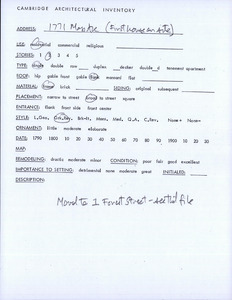 CAMBRIDGE ARCHITECTURAL INVENTORY
ADDRESS: 1771 Mass Ave (First house on site)
USE: residential commercial religious
STORIES: 1 2 3 4 5
TYPE: single double row duplex decker double d tenement apartment
ROOF: hip gable front gable flank mansard flat
MATERIAL: wood brick SIDING: original subsequent
PLACEMENT: narrow to street broad to street unique
ENTRANCE: flank front side front center
STYLE:
ORNAMENT: little moderate elaborate
DATE: 1790 1800 10 20 30 40 50 60 70 80 90 1900 10 20 30
MAP:
REMODELING: drastic moderate minor CONDITION: poor fair good excellent
IMPORTANCE TO SETTING: detrimental none moderate great INITIALED:
DESCRIPTION:
Moved to 1 Forest Street - see that file